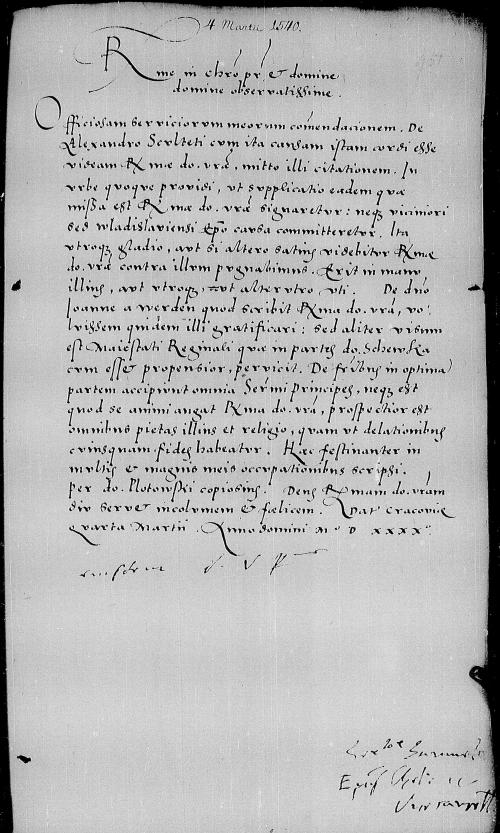 4 Martii 1540.
Rme in chro pr et domine
domine observatissime.
Officiosam serviciorum meorum comendacionem. De
Alexandro Sculteti cum ita causam istam cordi esse
videam R mae do. vrae, mitto illi citationem. In
urbe quoque providi, ut supplicatio eadem quae
missa est R mae do. vrae signaretur: neque viciniori
sed wladislaviensi Epo causa committeretur. Ita
utroque gladio, aut si altero satius videbitur R mae
do. vrae contra illum pugnabimus. Erit in manu
illius, aut utroque, aut alterutro, uti. De dno
Joanne a werden quod scribit R ma do. vra, vo-
luissem quidem illi gratificari: sed aliter visum
est Maiestati Reginali quae in partes do. Schewka
cum esset propensior, pervicit. De in optima
partem accipiunt omnia Sermi principes, neque est
quod se animi angat R ma do. vra, prospectior est
omnibus pietas illius et religio, quam ut delationibus
cuiusquam fides habeatur. Haec festinanter in
multis et magnis meis occupationibus scripsi.
per do. Plotowski copiosius. Deus R mam do. vram
diu servet incolumem et foelicem. Dat Cracoviae
quarta Martii. Anno domini M° D XXXX°.
eiusdem
Epus